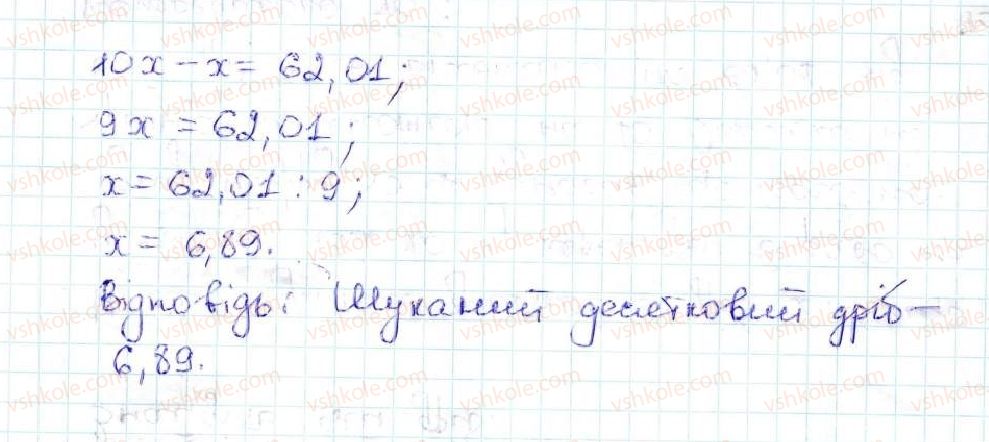 10x - x = 62,01;
9x = 62,01;
x = 62,01 : 9;
x = 6,89.
Відповідь: Шуканий десятковий дріб -
6,89.